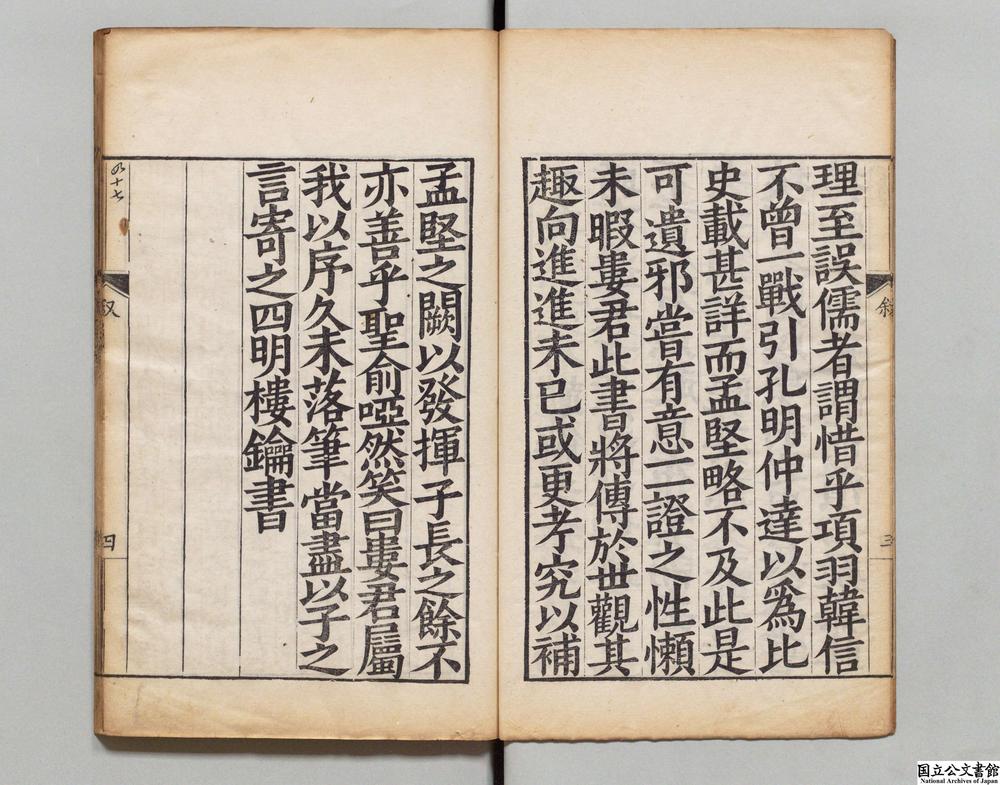 理至誤儒者謂惜乎項羽韓信
不曾一戰引孔明仲達以爲比
史載甚詳而孟堅略不及此是
可遺邪嘗有意一二證之性懶
未暇婁君此書將傳於世觀其
趣向進進未已或更考究以補
敘
三
孟堅之闕以發揮子長之餘不
亦善乎聖俞啞然笑曰婁君屬
我以序久未落筆當盡以子之
言寄之四明樓鑰書
叙
四
国立公文書館
National Archives of Japan